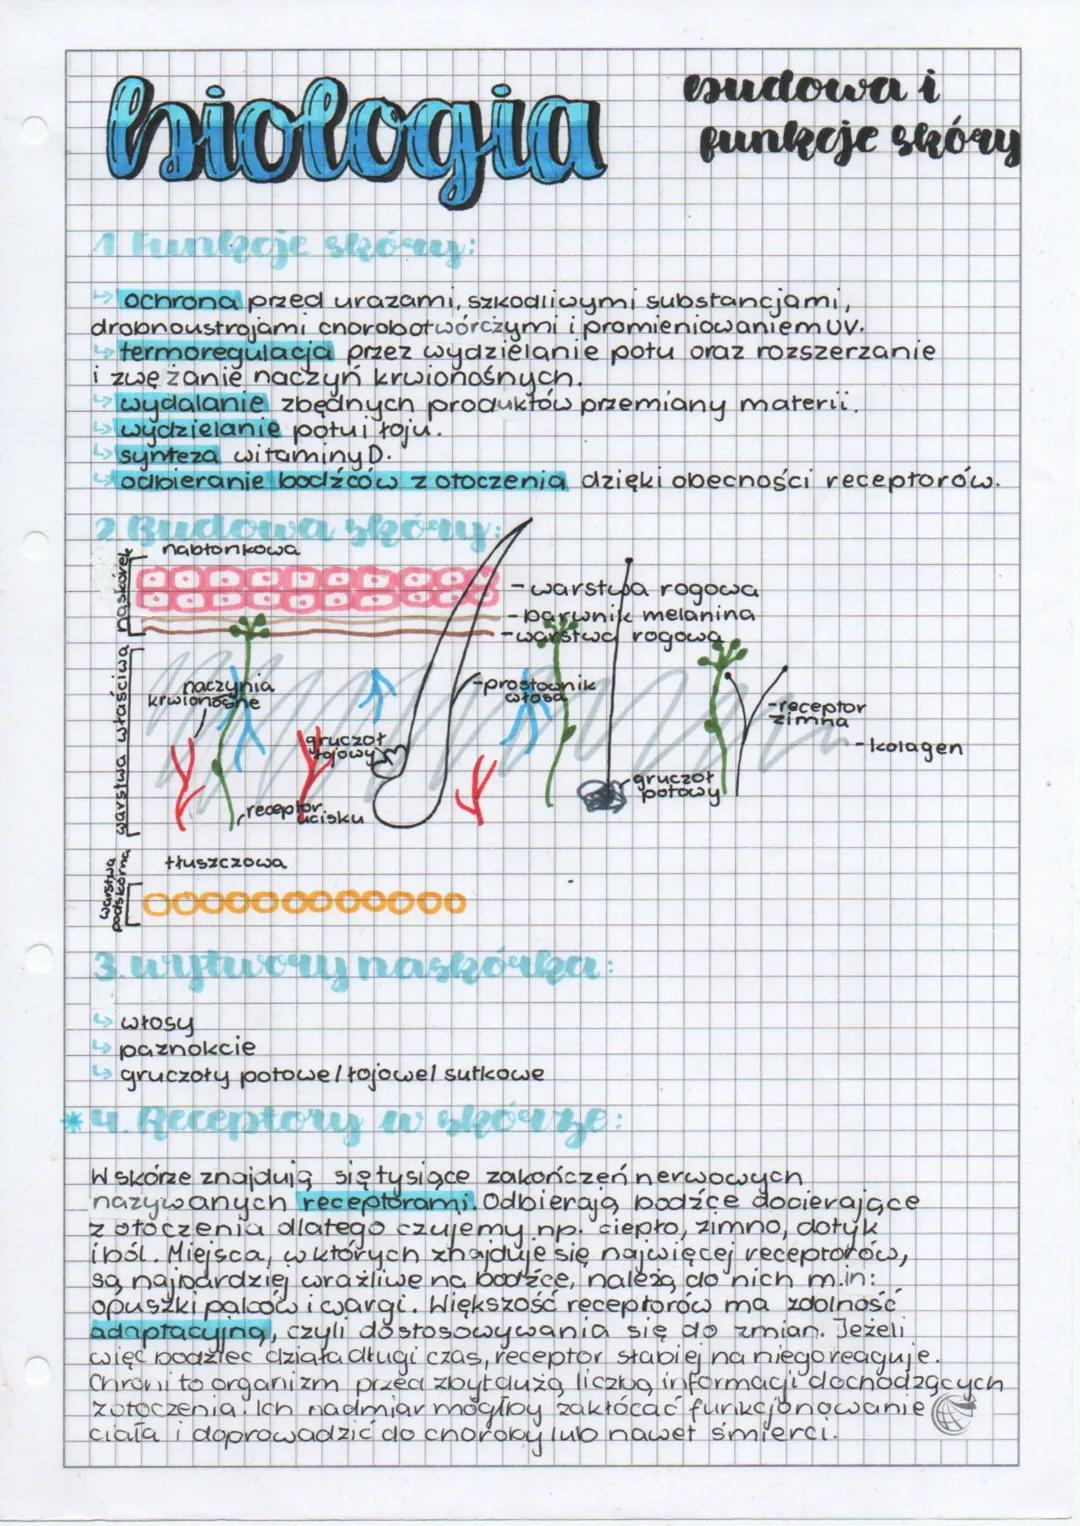 biologia
budowa i
funkcje skóry
1 Funkcje skóry:
↳ ochrona przed urazami, szkodliwymi substancjami,
drobnoustrojami chorobotwórczymi i promieniowaniem UV.
↳ termoregulacja przez wydzielanie potu oraz rozszerzanie
i zwężanie naczyń krwionośnych.
↳ wydalanie zbędnych produktów przemiany materii.
↳ wydzielanie potu i łoju.
↳ synteza witaminy D.
↳ odbieranie bodźców z otoczenia dzięki obecności receptorów.
2 Budowa skóry:
naskórek
nabłonkowa
-warstwa rogowa
-barwnik melanina
-warstwa rogowa
warstwa właściwa
naczynia
krwionośne
-prostownik
włosa
-receptor
zimna
-kolagen
gruczoł
łojowy
gruczoł
potowy
receptor
ucisku
warstwa
podskórna
tłuszczowa
3. wytwory naskórka:
↳ włosy
↳ paznokcie
↳ gruczoły potowe/łojowe/sutkowe
*4. Receptory w skórze:
W skórze znajdują się tysiące zakończeń nerwowych
nazywanych receptorami. Odbierają bodźce docierające
z otoczenia dlatego czujemy np. ciepło, zimno, dotyk
i ból. Miejsca, w których znajduje się najwięcej receptorów,
są najbardziej wrażliwe na bodźce, należą do nich m.in:
opuszki palców i wargi. Większość receptorów ma zdolność
adaptacyjną, czyli dostosowywania się do zmian. Jeżeli
więc bodziec działa długi czas, receptor słabiej na niego reaguje.
Chroni to organizm przed zbyt dużą liczbą informacji dochodzących
z otoczenia. Ich nadmiar mógłby zakłócać funkcjonowanie
ciała i doprowadzić do choroby lub nawet śmierci.